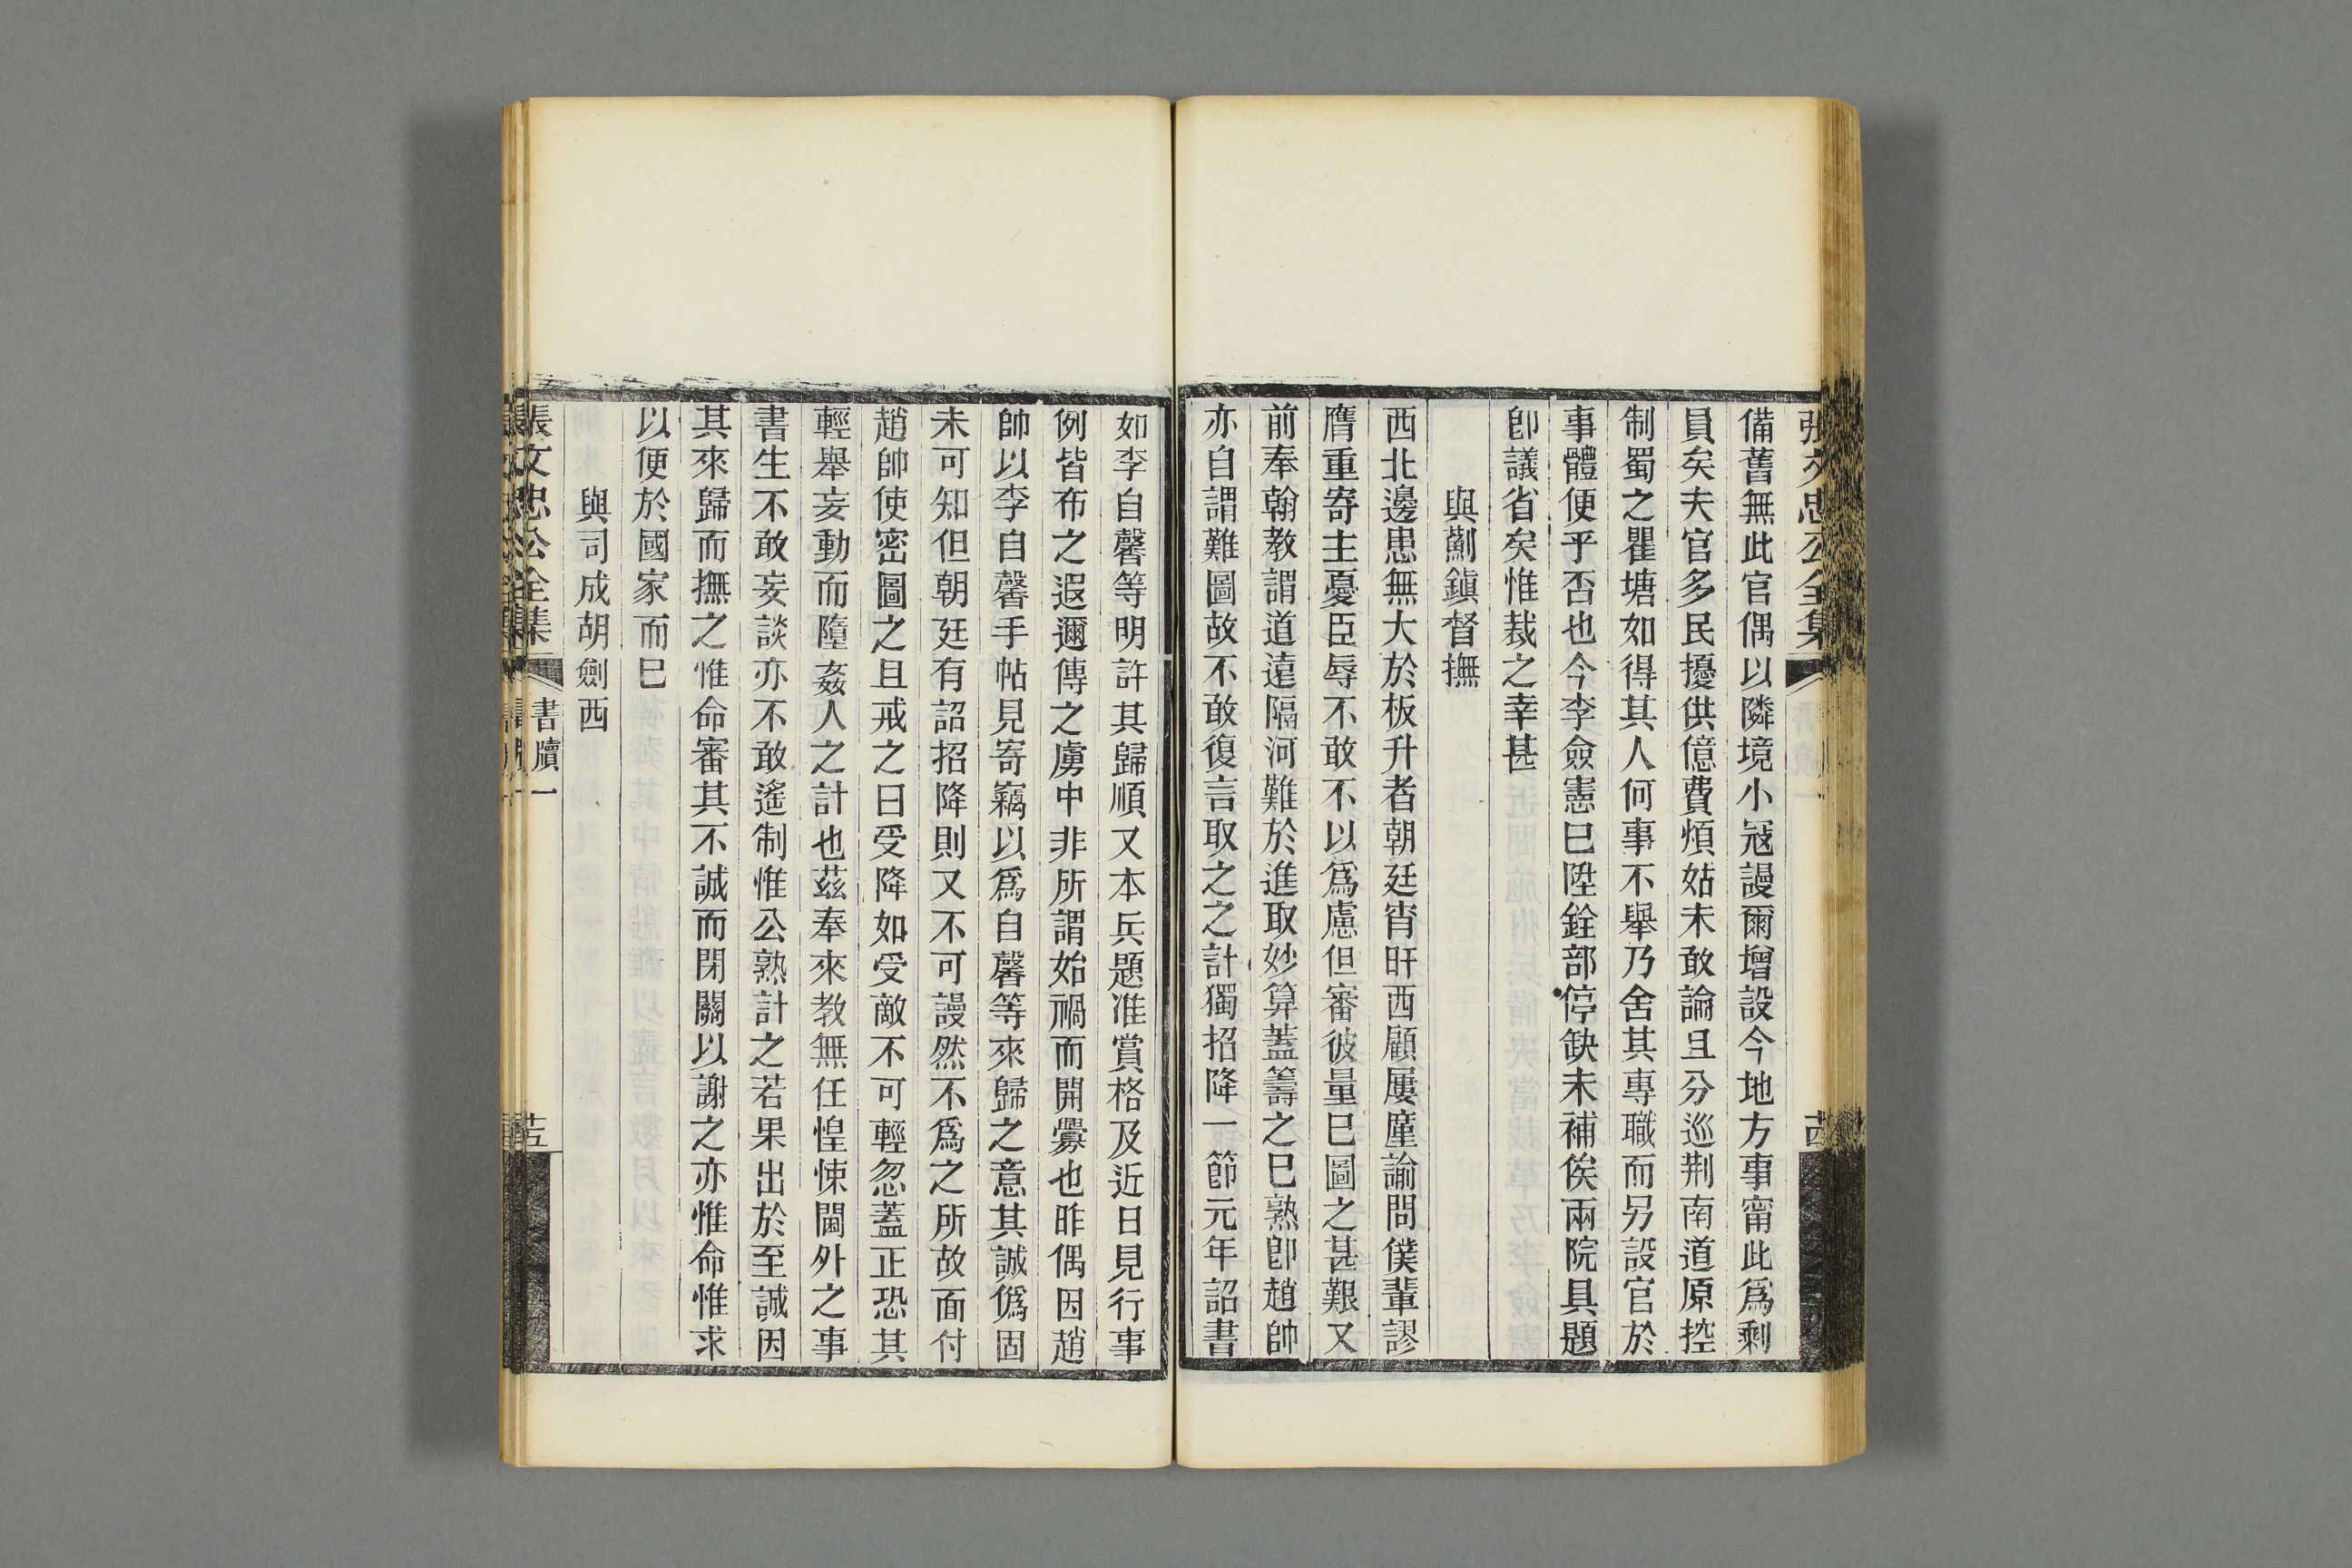 張文忠公全集
備舊無此官偶以隣境小冦謾爾增設今地方事甯此爲剩
員矣夫官多民擾供億費煩姑未敢論且分巡荆南道原控
制蜀之瞿塘如得其人何事不舉乃舍其專職而另設官於
事體便乎否也今李僉憲巳陞銓部停缺未補俟兩院具題
卽議省矣惟裁之幸甚
與薊鎮督撫
西北邊患無大於板升者朝廷宵旰西顧屢廑諭問僕輩謬
膺重寄主憂臣辱不敢不以爲慮但審彼量巳圖之甚艱又
前奉翰教謂道遠隔河難於進取妙算蓋籌之巳熟卽趙帥
亦自謂難圖故不敢復言取之之計獨招降一節元年詔書
如李自馨等明許其歸順又本兵題准賞格及近日見行事
例皆布之遐邇傳之虜中非所謂始禍而開釁也昨偶因趙
帥以李自馨手帖見寄竊以爲自馨等來歸之意其誠僞固
未可知但朝廷有詔招降則又不可謾然不爲之所故面付
趙帥使密圖之且戒之曰受降如受敵不可輕忽蓋正恐其
輕舉妄動而隳姦人之計也茲奉來教無任惶悚閫外之事
書生不敢妄談亦不敢遙制惟公熟計之若果出於至誠因
其來歸而撫之惟命審其不誠而閉關以謝之亦惟命惟求
以便於國家而巳
與司成胡劍西
張文忠公全集 書牘一